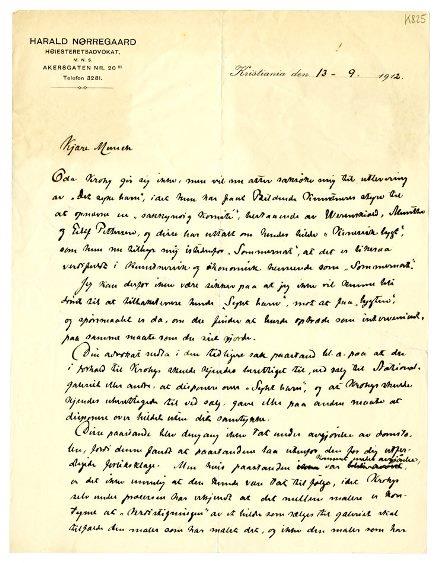 K825
HARALD NØRREGAARD
HØIESTERETSADVOKAT.
M. N. S.
AKERSGATEN NR. 20 III
Telefon 3281.
Kristiania den 13 - 9. 1912.
Kjære Munch
Oda Krohg gir sig ikke, men vil nu atter saksøke mig til utlevering
av „Det syke barn", idet hun har faat Bildende Kunstneres styre til
at opnævne en „sakkyndig komité", bestaaende av Werenskiold,
og Eilif Peterssen, og disse har uttalt om hendes billede
som hun nu tilbyr mig istedenfor „Sommernat", at det er likesaa
verdifuldt i kunstnerisk og økonomisk henseende som „Sommernat".
Jeg kan derfor ikke være sikker paa at jeg ikke vil kunne bli
dømt til at tilbakelevere hende „Sykt barn", mot at faa
og spørsmaalet er da, om du finder at burde optræde som intervenient,
paa samme maate som du sist gjorde.
Din advokat nedla i den tidligere sak paastand bl. a. paa at du
i forhold til Krohgs skulde kjendes berettiget til, ved salg til National-
galleriet eller andre, at disponere over „Sykt barn", og at Krohgs skulde
kjendes uberettiget til ved salg, gave eller paa anden maate at
disponere over billedet uten dit samtykke.
Disse paastande blev dengang ikke tat under avgjørelse av domsto-
len, fordi denne fandt at paastanden laa utenfor den for dig utfer-
digede forliksklage. Men hvis paastanden var kommet under avgjørelse,
er det ikke umulig at den kunde være tat tilfølge, idet Krohgs
selv under processen har erkjendt at det mellem malere er kon-
tyme at „Værdistigningen" av et billede som sælges til galleriet skal
tilfalde den maler som har malet det, og ikke den maler som har